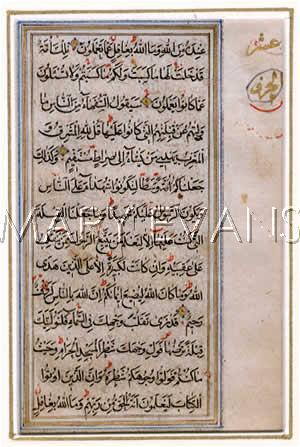 عنده من الله وما الله بغافل عما تعملون تلك امة
قد خلت لها ما كسبت ولكم ما كسبتم ولا تسئلون
عما كانوا يعملون سيقول السفهاء من الناس ما
وليهم عن قبلتهم التي كانوا عليها قل لله المشرق و
المغرب يهدي من يشاء الى صراط مستقيم وكذلك
جعلناكم امة وسطا لتكونوا شهداء على الناس
ويكون الرسول عليكم شهيدا وما جعلنا القبلة
التي كنت عليها الا لنعلم من يتبع الرسول ممن ينقلب
على عقبيه وان كانت لكبيرة الا على الذين هدى
الله وما كان الله ليضيع ايمانكم ان الله بالناس لرؤف
رحيم قد نرى تقلب وجهك في السماء فلنولينك
قبلة ترضيها فول وجهك شطر المسجد الحرام وحيث
ما كنتم فولوا وجوهكم شطره وان الذين اوتوا
الكتاب ليعلمون انه الحق من ربهم وما الله بغافل
عشر
MARY EVANS